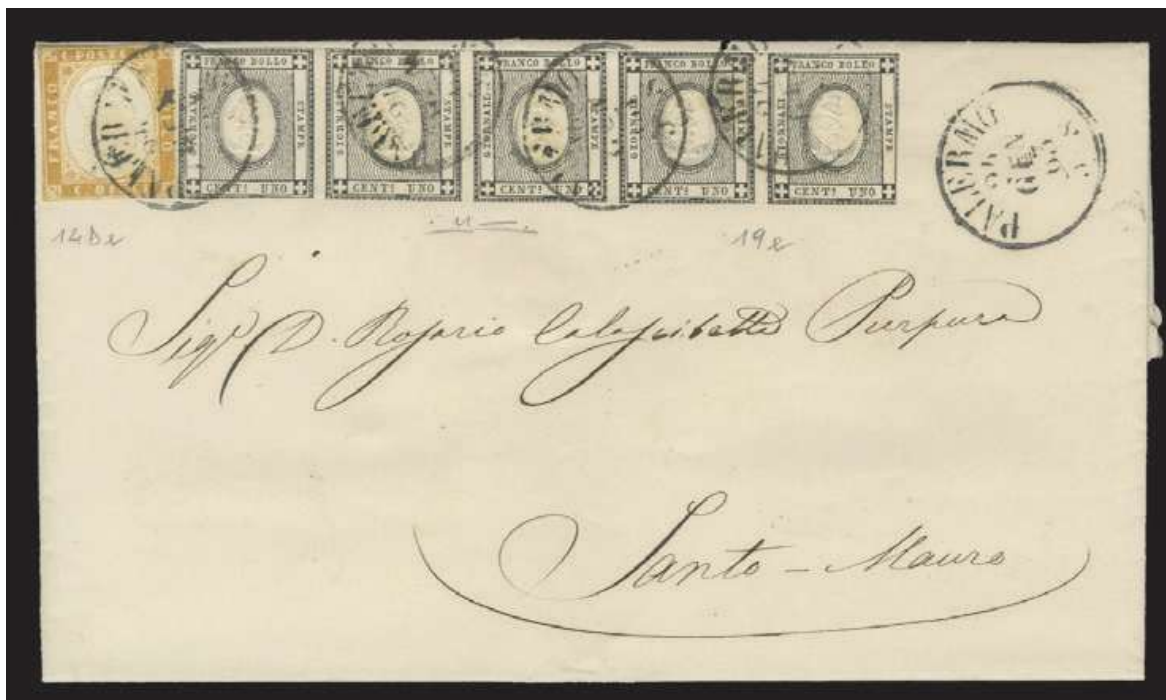 C. POSTE
FRANCO
C. DIECI
FRANCO BOLLO
GIORNALI
STAMPE
CENT! UNO
FRANCO BOLLO
GIORNALI
STAMPE
CENT! UNO
FRANCO BOLLO
GIORNALI
STAMPE
CENT! UNO
FRANCO BOLLO
GIORNALI
STAMPE
CENT! UNO
FRANCO BOLLO
GIORNALI
STAMPE
CENT! UNO
PALERMO
GEN
14De
19e
Sigr D. Rosario Calascibetta Purpura
Santo - Mauro